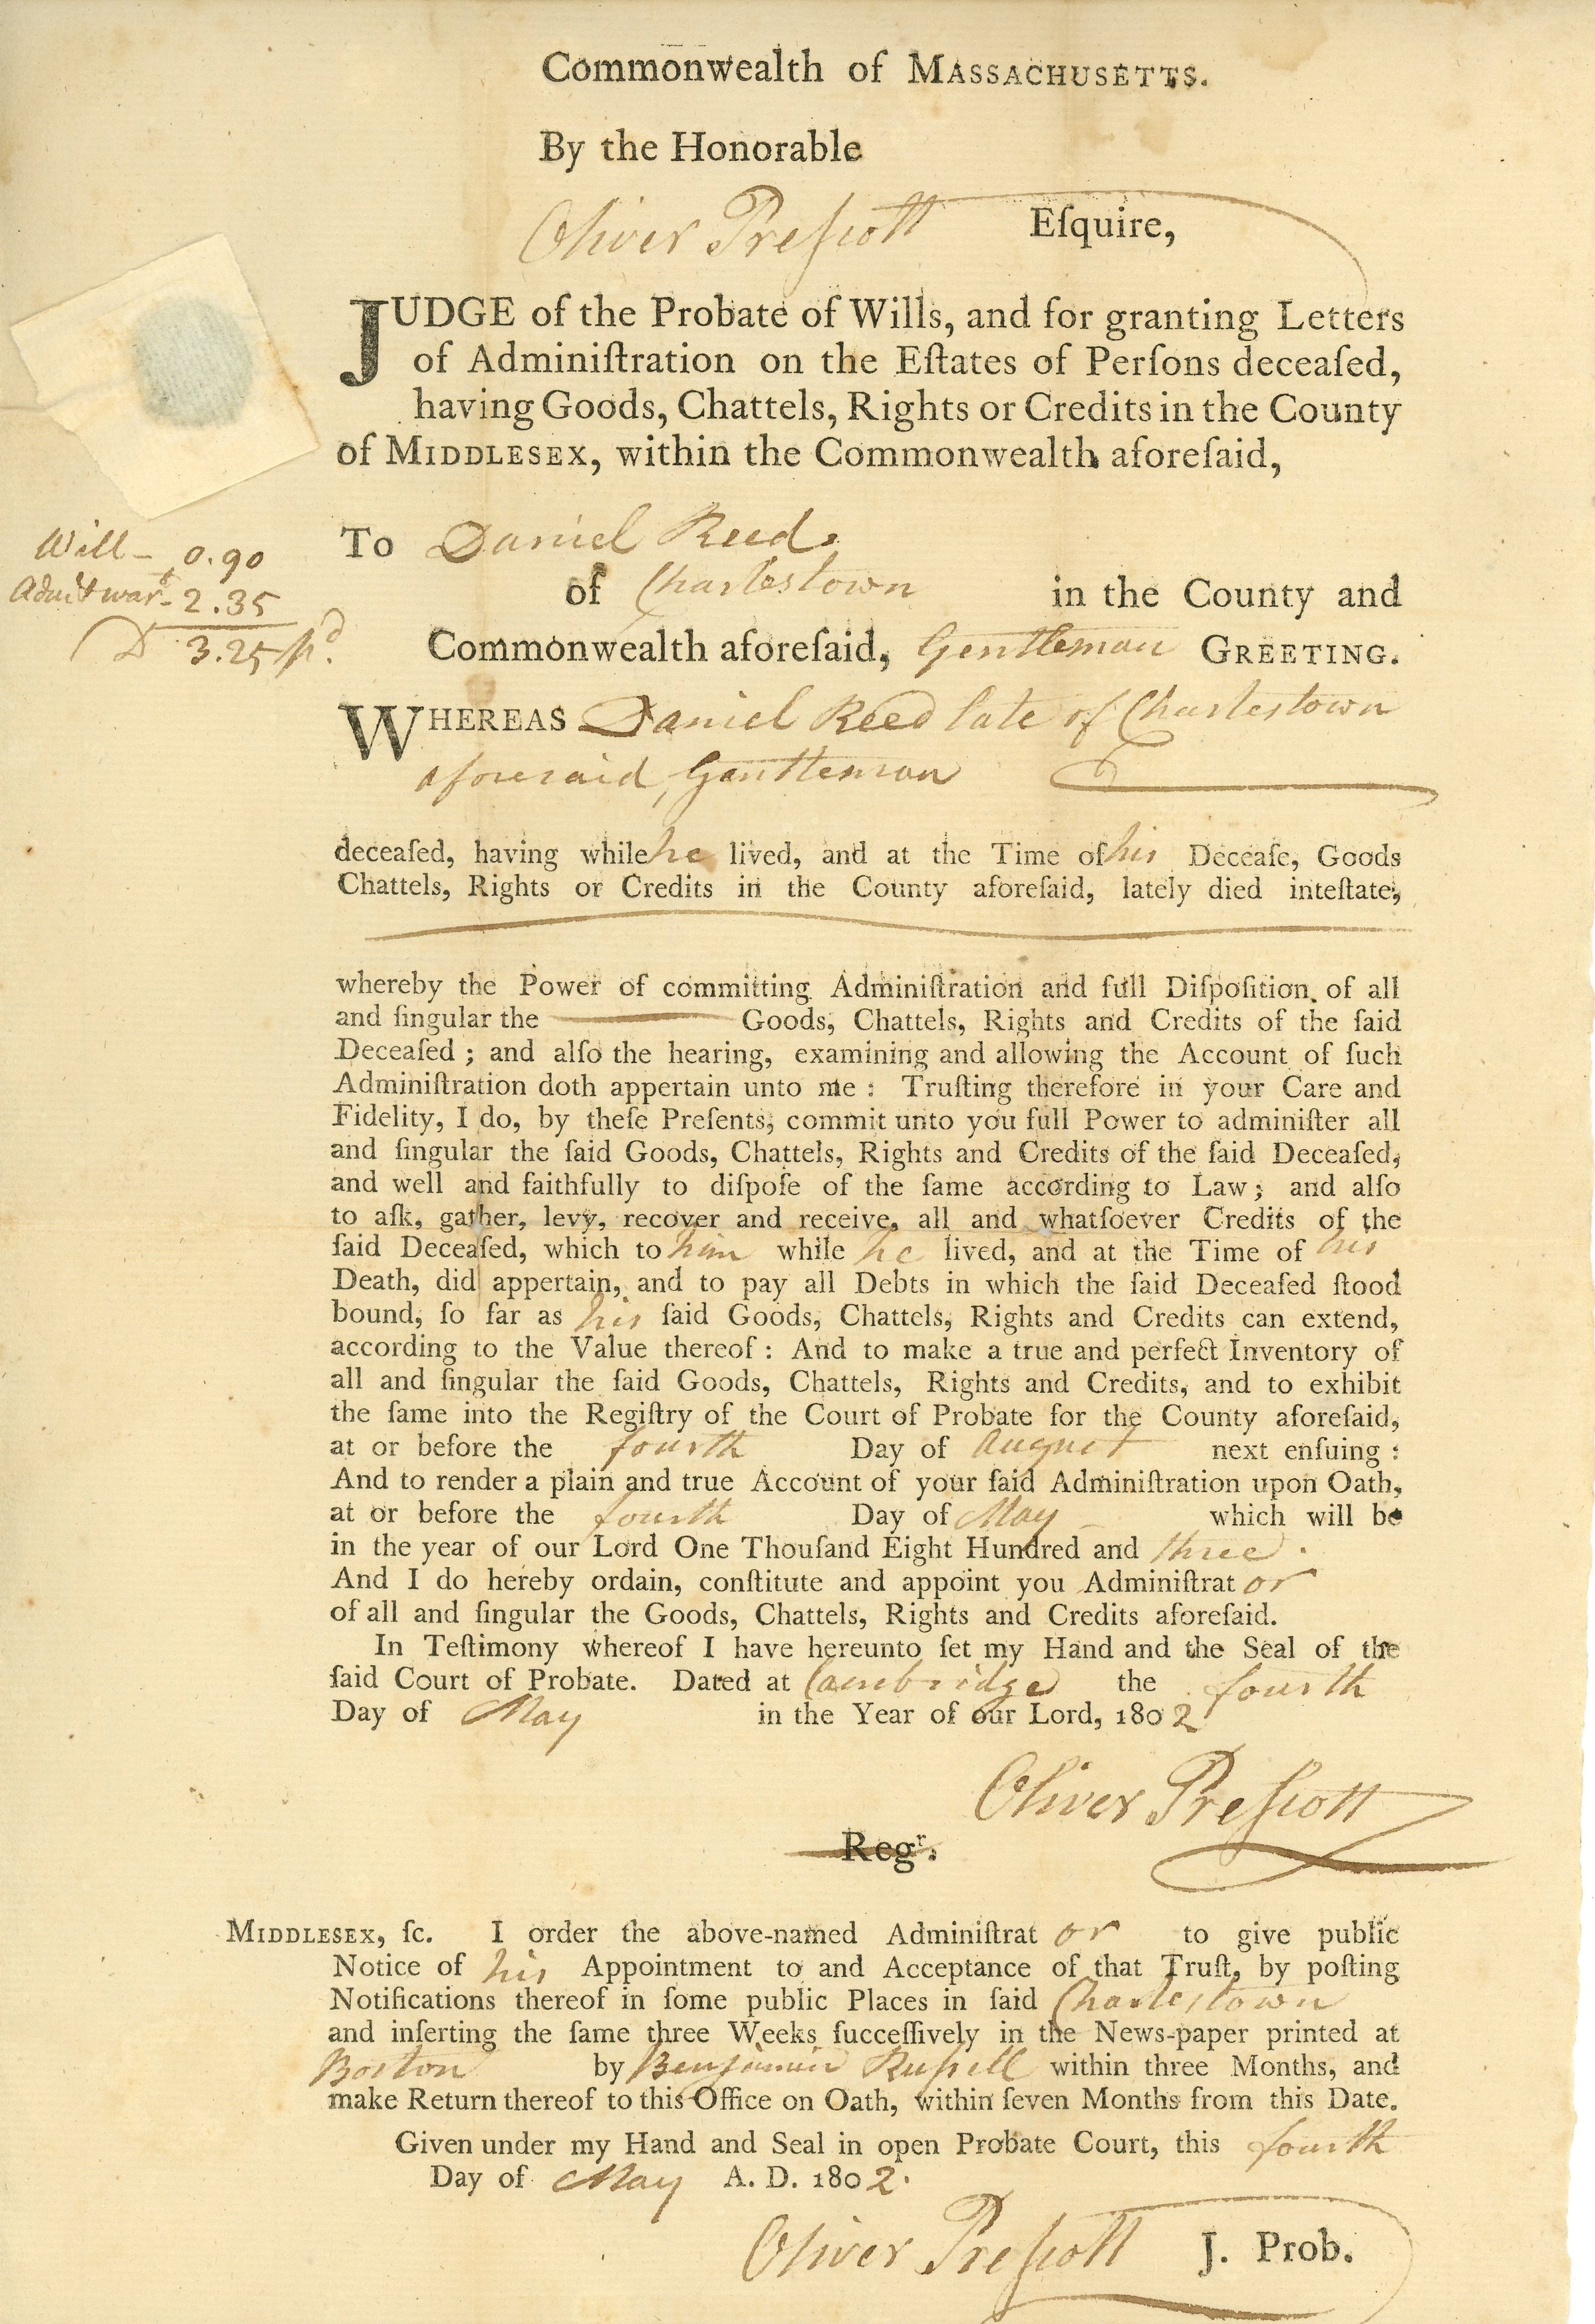 Commonwealth of MASSACHUSETTS.
By the Honorable
Oliver Preſcott Eſquire,
JUDGE of the Probate of Wills, and for granting Letters
of Adminiſtration on the Eſtates of Perſons deceaſed,
having Goods, Chattels, Rights or Credits in the County
of MIDDLESEX, within the Commonwealth aforeſaid,
Will - 0.90
2.35
D 3.25 pd.
To Daniel Reed.
of Charlestown in the County and
Commonwealth aforeſaid, Gentleman GREETING.
WHEREAS Daniel Reed late of Charlestown
aforesaid, Gentleman
deceaſed, having while he lived, and at the Time of his Deceaſe, Goods
Chattels, Rights or Credits in the County aforeſaid, lately died inteſtate;
whereby the Power of committing Adminiſtration and full Diſpoſition of all
and ſingular the Goods, Chattels, Rights and Credits of the ſaid
Deceaſed ; and alſo the hearing, examining and allowing the Account of ſuch
Adminiſtration doth appertain unto me : Truſting therefore in your Care and
Fidelity, I do, by theſe Preſents, commit unto you full Power to adminiſter all
and ſingular the ſaid Goods, Chattels, Rights and Credits of the ſaid Deceaſed,
and well and faithfully to diſpoſe of the ſame according to Law ; and alſo
to aſk, gather, levy, recover and receive, all and whatſoever Credits of the
ſaid Deceaſed, which to him while he lived, and at the Time of his
Death, did appertain, and to pay all Debts in which the ſaid Deceaſed ſtood
bound, ſo far as his ſaid Goods, Chattels, Rights and Credits can extend,
according to the Value thereof : And to make a true and perfect Inventory of
all and ſingular the ſaid Goods, Chattels, Rights and Credits, and to exhibit
the ſame into the Regiſtry of the Court of Probate for the County aforeſaid,
at or before the fourth Day of August next enſuing :
And to render a plain and true Account of your ſaid Adminiſtration upon Oath,
at or before the fourth Day of May which will be
in the year of our Lord One Thouſand Eight Hundred and three.
And I do hereby ordain, conſtitute and appoint you Adminiſtrat or
of all and ſingular the Goods, Chattels, Rights and Credits aforeſaid.
In Teſtimony whereof I have hereunto ſet my Hand and the Seal of the
ſaid Court of Probate. Dated at Cambridge the fourth
Day of May in the Year of our Lord, 1802
Oliver Preſcott
Regr.
MIDDLESEX, ſc. I order the above-named Adminiſtrat or to give public
Notice of his Appointment to and Acceptance of that Truſt, by poſting
Notifications thereof in ſome public Places in ſaid Charlestown
and inſerting the ſame three Weeks ſucceſſively in the News-paper printed at
Boston by Benjamin Ruſsell within three Months, and
make Return thereof to this Office on Oath, within ſeven Months from this Date.
Given under my Hand and Seal in open Probate Court, this fourth
Day of May A. D. 1802.
Oliver Preſcott J. Prob.